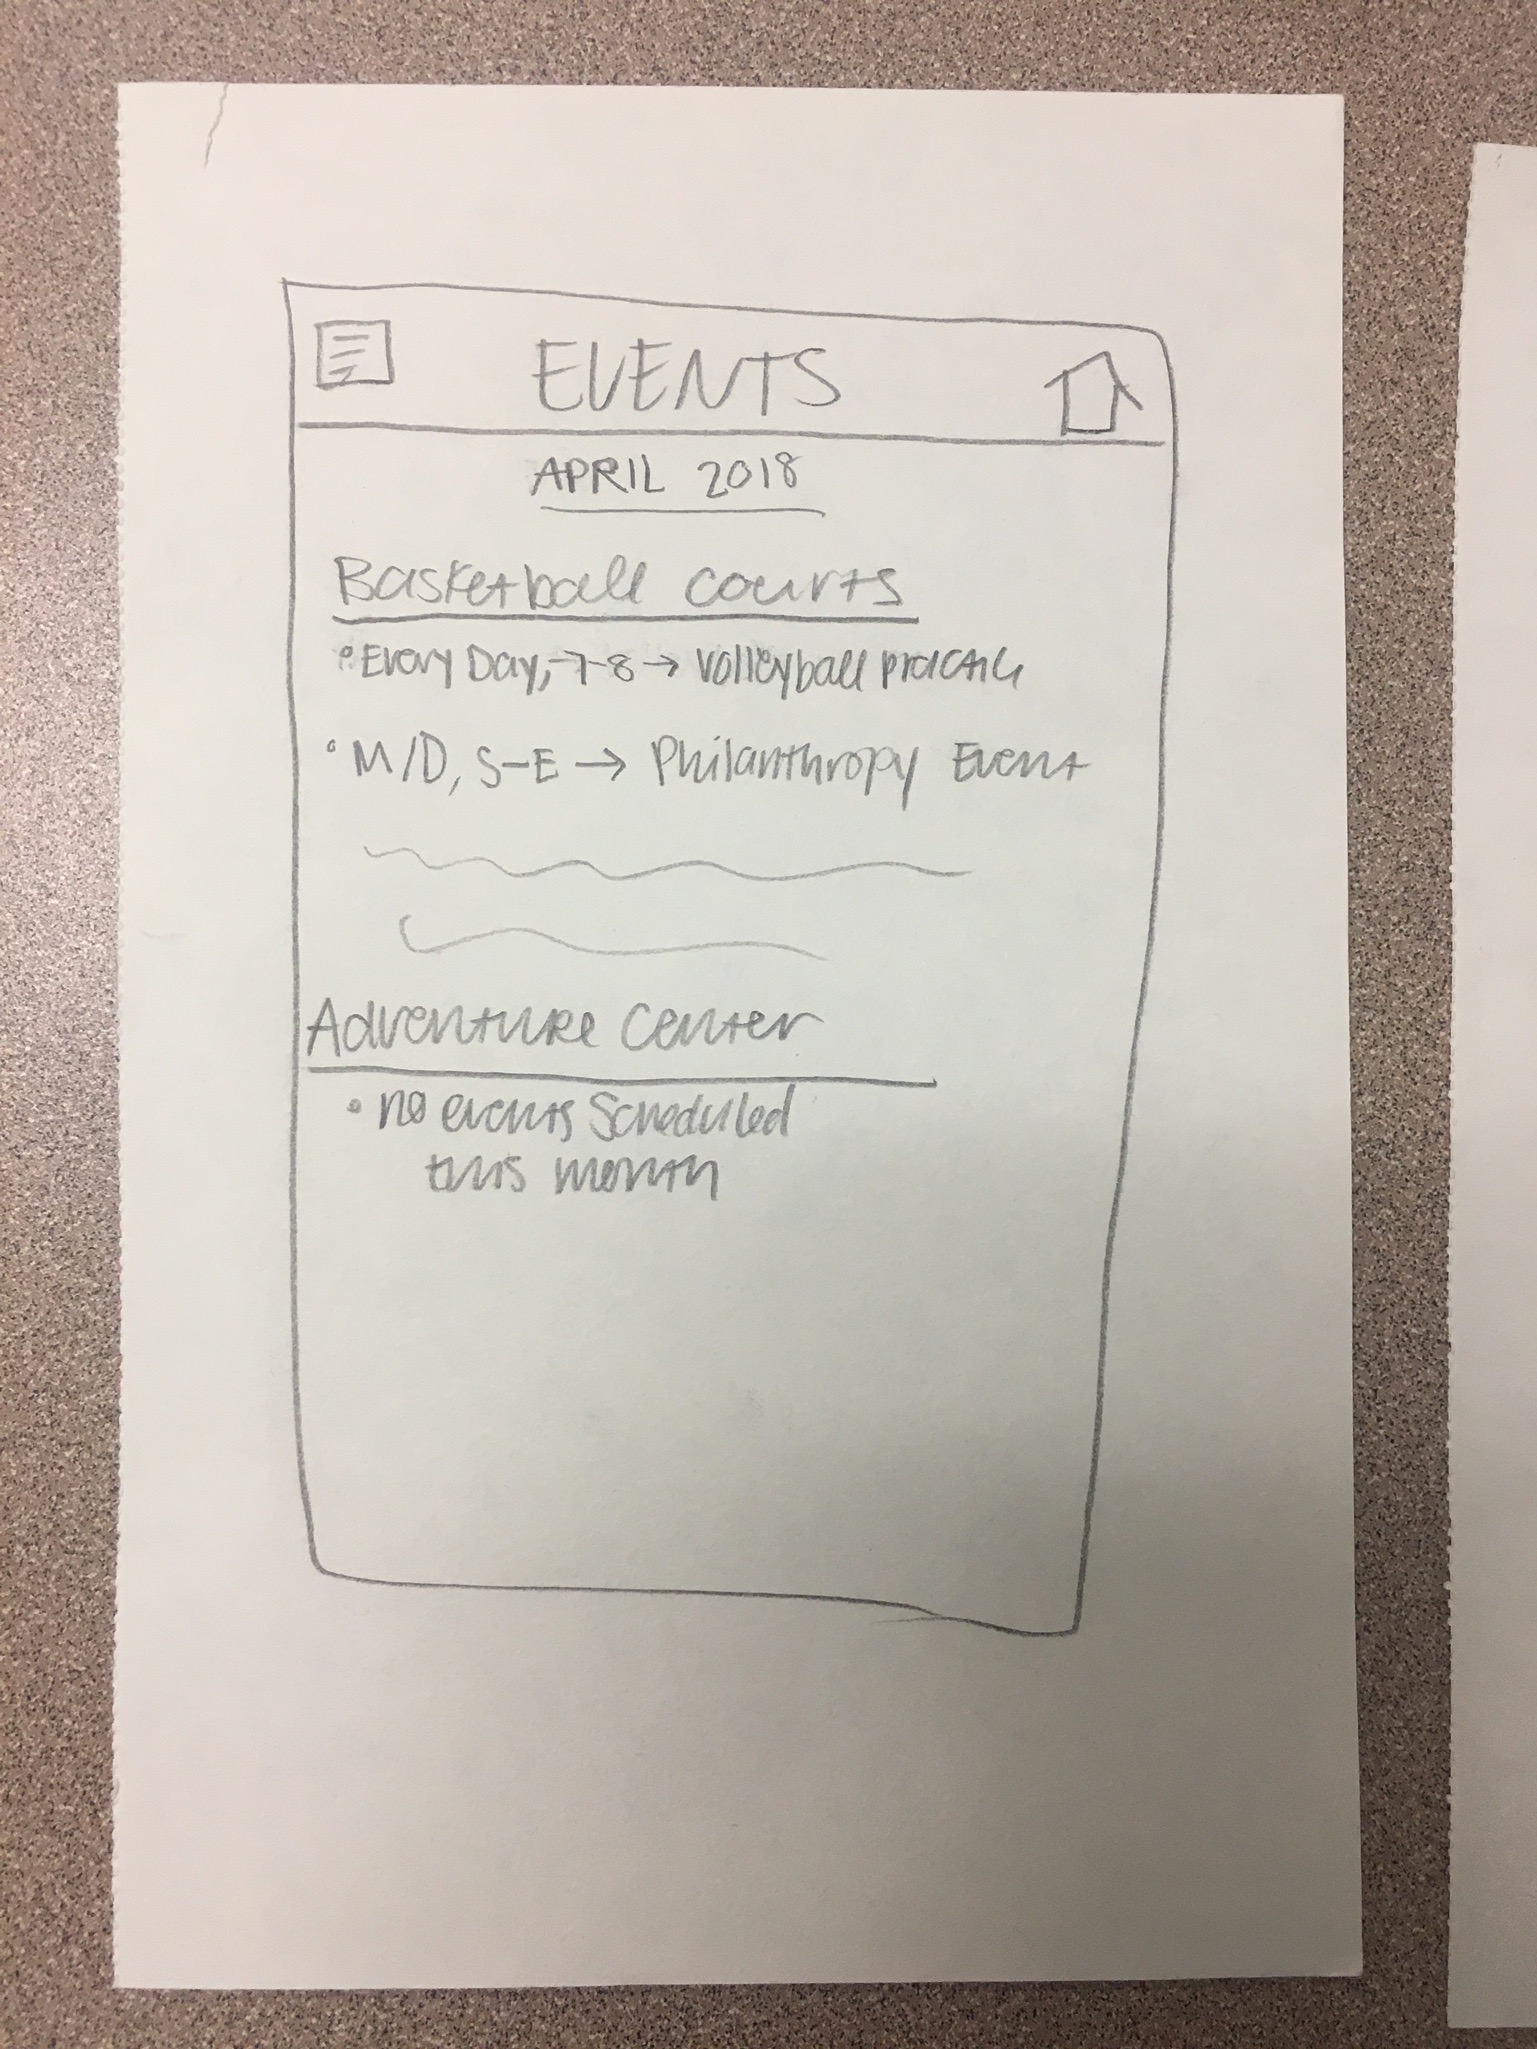 EVENTS
APRIL 2018
Basketball courts
• Every Day, 7-8 → Volleyball practice
• M/D, S-E → Philanthropy Event
Adventure Center
• no events scheduled
this month